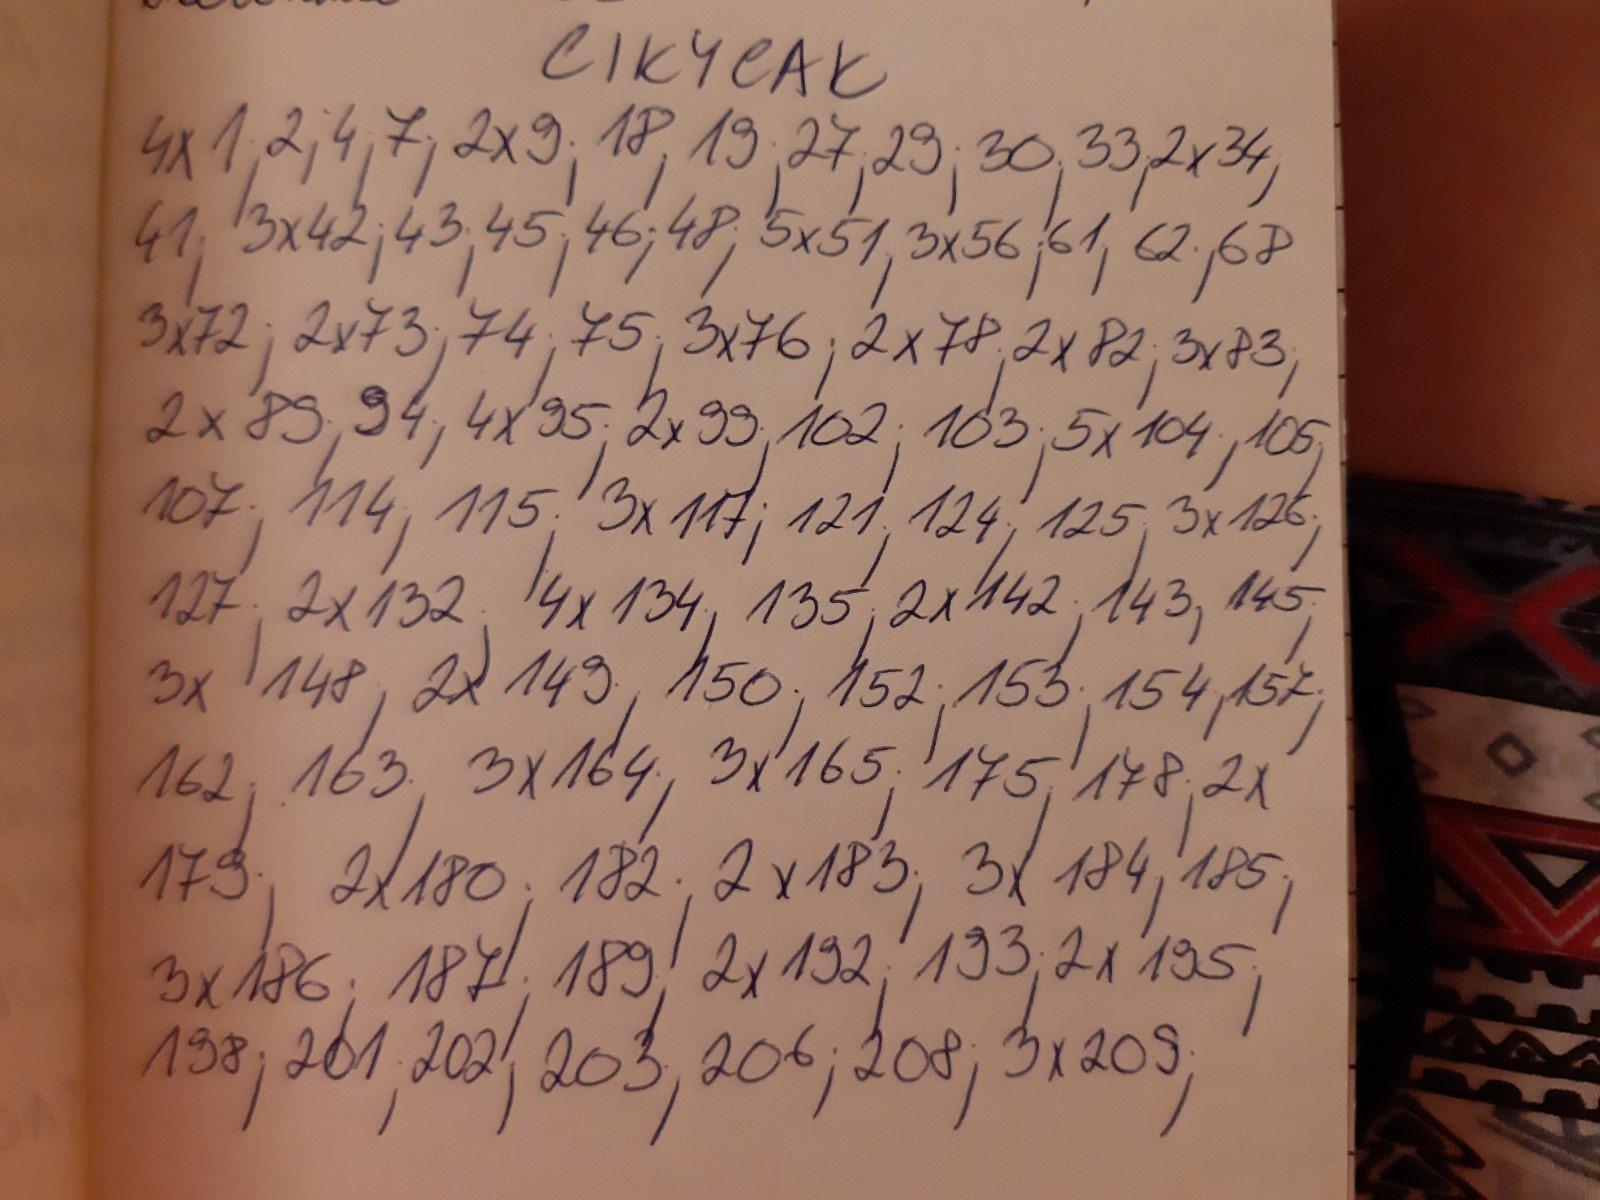 CIKCAK
4x 1; 2; 4; 7; 2x9; 18; 19; 27; 29; 30; 33; 2x34;
41; 3x42; 43; 45; 46; 48; 5x51; 3x56; 61; 62; 68
3x72; 2x73; 74; 75; 3x76; 2x78; 2x82; 3x83;
2x 89; 94; 4x95; 2x99; 102; 103; 5x104; 105;
107; 114; 115; 3x117; 121; 124; 125; 3x126;
127; 2x132; 4x134; 135; 2x142; 143; 145;
3x 148; 2x 149; 150; 152; 153; 154; 157;
162; 163; 3x164; 3x165; 175; 178; 2x
179; 2x180; 182; 2x183; 3x 184; 185;
3x186; 187; 189; 2x192; 193; 2x 195;
198; 201; 202; 203; 206; 208; 3x209;